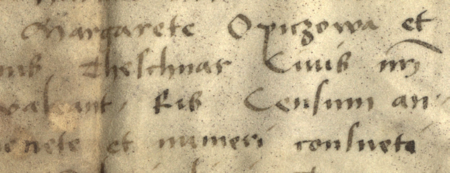 Margarete Opiczowa et
nus Theschnar Civis nri
valeant. Kis Censum an
ete et numeri consueti